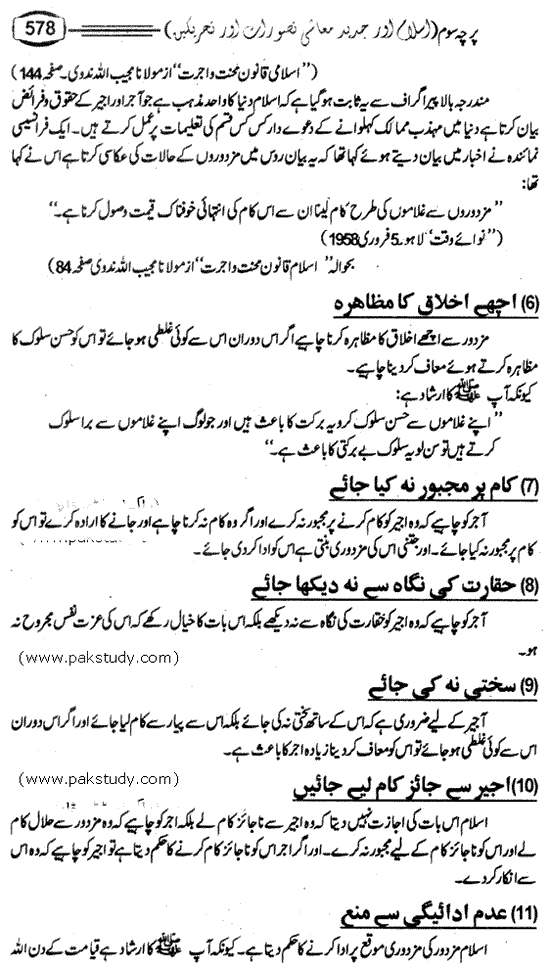 پرچہ سوم (اسلام اور جدید معاشی تصورات اور تحریکیں) 578
(’’اسلامی قانون محنت و اجرت‘‘ از مولانا مجیب اللہ ندوی۔ صفحہ 144)
مندرجہ بالا پیراگراف سے یہ ثابت ہو گیا ہے کہ اسلام دنیا کا واحد مذہب ہے جو آجر اور اجیر کے حقوق و فرائض
بیان کرتا ہے دنیا میں مہذب ممالک کہلوانے کے دعوے دار کس کس قسم کی تعلیمات پر عمل کرتے ہیں۔ ایک فرانسیسی
نمائندہ نے اخبار میں بیان دیتے ہوئے کہا تھا کہ یہ بیان روس میں مزدوروں کے حالات کی عکاسی کرتا ہے اس نے کہا
تھا:
’’مزدوروں سے غلاموں کی طرح کام لینا ان سے اس کام کی انتہائی خوفناک قیمت وصول کرنا ہے۔‘‘
(’’نوائے وقت‘‘ لاہور۔ 5 فروری 1958)
بحوالہ ’’اسلام قانون محنت و اجرت‘‘ از مولانا مجیب اللہ ندوی صفحہ 84)
(6) اچھے اخلاق کا مظاھرہ
مزدور سے اچھے اخلاق کا مظاہرہ کرنا چاہیے اگر اس دوران اس سے کوئی غلطی ہو جائے تو اس کو حسن سلوک کا
مظاہرہ کرتے ہوئے معاف کر دینا چاہیے۔
کیونکہ آپ ﷺ کا ارشاد ہے:
’’اپنے غلاموں سے حسن سلوک کرو یہ برکت کا باعث ہیں اور جو لوگ اپنے غلاموں سے برا سلوک
کرتے ہیں تو سن لو یہ سلوک بے برکتی کا باعث ہے۔‘‘
(7) کام پر مجبور نہ کیا جائے
آجر کو چاہیے کہ وہ اجیر کو کام کرنے پر مجبور نہ کرے اور اگر وہ کام نہ کرنا چاہے اور جانے کا ارادہ کرے تو اس کو
کام پر مجبور نہ کیا جائے۔ اور جتنی اس کی مزدوری بنتی ہے اس کو ادا کر دی جائے۔
(8) حقارت کی نگاہ سے نہ دیکھا جائے
آجر کو چاہیے کہ وہ اجیر کو حقارت کی نگاہ سے نہ دیکھے بلکہ اس بات کا خیال رکھے کہ اس کی عزت نفس مجروح نہ
ہو۔
(www.pakstudy.com)
(9) سختی نہ کی جائے
آجیر کے لیے ضروری ہے کہ اس کے ساتھ سختی نہ کی جائے بلکہ اس سے پیار سے کام لیا جائے اور اگر اس دوران
اس سے کوئی غلطی ہو جائے تو اس کو معاف کر دینا زیادہ اجر کا باعث ہے۔
(www.pakstudy.com)
(10) اجیر سے جائز کام لیے جائیں
اسلام اس بات کی اجازت نہیں دیتا کہ وہ اجیر سے ناجائز کام لے بلکہ اجر کو چاہیے کہ وہ مزدور سے حلال کام
لے اور اس کو ناجائز کام کے لیے مجبور نہ کرے۔ اور اگر اجر اس کو ناجائز کام کرنے کا حکم دیتا ہے تو اجیر کو چاہیے کہ وہ اس
سے انکار کر دے۔
(11) عدم ادائیگی سے منع
اسلام مزدور کی مزدوری موقع پر ادا کرنے کا حکم دیتا ہے۔ کیونکہ آپ ﷺ کا ارشاد ہے قیامت کے دن اللہ